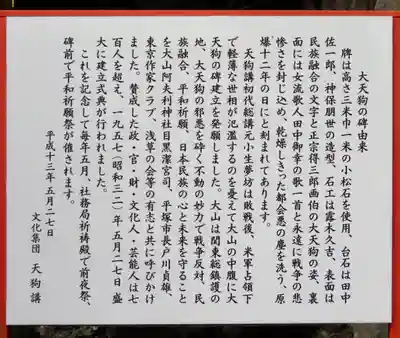 大天狗の碑由来
碑は高さ三米巾一米の小松石を使用、台石は田中
佐一郎、神保朋世の造型、石工は露木久吉、表面は
民族融合の文字と正宗得三郎画伯の大天狗の姿、裏
面には女流歌人田中御幸の歌一首と永遠に戦争の悲
惨さを封じ込め、乾燥しきった都会悪の塵を洗う、原
爆十二年の日にと刻まれてあります。
天狗講初代総講元小生夢坊は敗戦後、米軍占領下
で軽薄な世相が氾濫するのを憂えて大山の中腹に大
天狗の碑建立を発願しました。大山は関東総鎮護の
地、大天狗の邪悪を砕く不動の妙力で戦争反対、民
族融合、平和祈願、日本民族の心と未来を守ること
を大山阿夫利神社目黒潔宮司、平塚市長戸川貞雄、
東京作家クラブ、浅草の会等の有志と共に呼びかけ
ました。賛成した政・官・財・文化人・芸能人は七
百人を超え、一九五七(昭和三二)年五月二七日盛
大に建立式典が行われました。
これを記念して毎年五月、社務局祈祷殿で前夜祭、
碑前で平和祈願祭が催されます。
平成十三年五月二七日
文化集団 天狗講